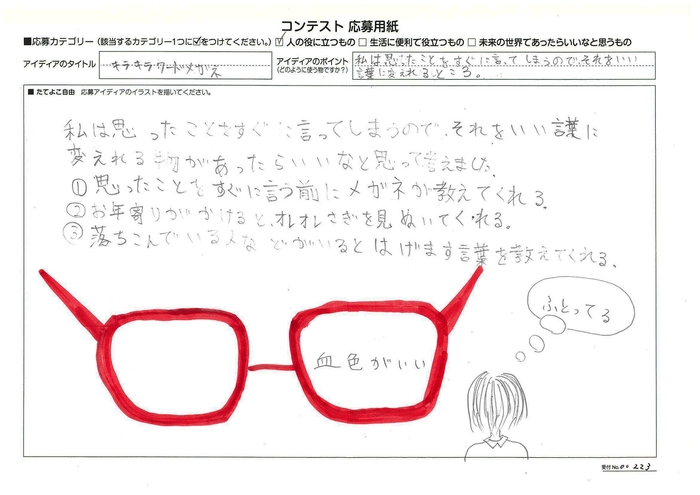 コンテスト 応募用紙
■応募カテゴリー（該当するカテゴリー1つに☑をつけてください。）☑ 人の役に立つもの □ 生活に便利で役立つもの □ 未来の世界であったらいいなと思うもの
アイディアのタイトル
キラキラワードメガネ
アイディアのポイント
（どのように使う物ですか？）
私は思ったことをすぐに言ってしまうので、それをいい
言葉に変えれるところ。
■ たてよこ自由 応募アイディアのイラストを描いてください。
私は思ったことをすぐに言ってしまうので、それをいい言葉に
変えれる物があったらいいなと思って考えました。
①思ったことをすぐに言う前にメガネが教えてくれる。
②お年寄りがかけると、オレオレさぎを見ぬいてくれる。
③落ちこんでいる人などがいるとはげます言葉を教えてくれる。
ふとってる
血色がいい
受付No.00223